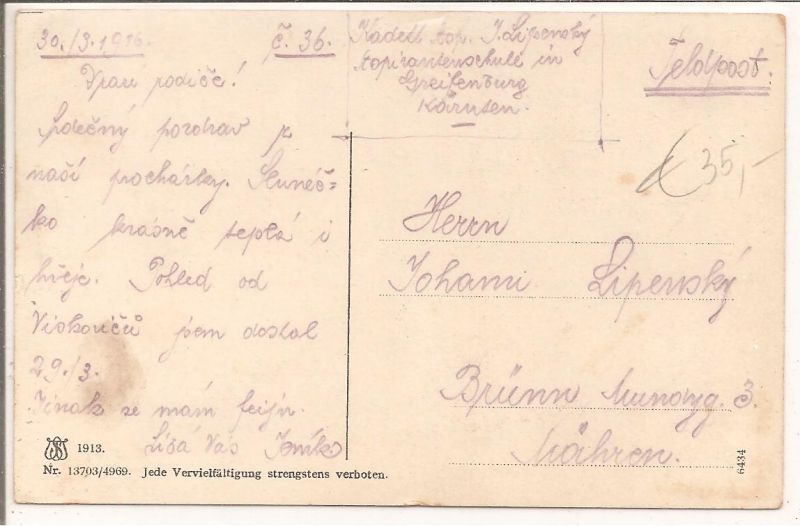 30./3. 1916. č. 36.
Drazí rodiče!
Srdečný pozdrav z
naší procházky. Sluneč-
ko krásně teplá i
hřeje. Pohled od
Viskovičů jsem dostal
29./3.
Jinak se mám fein.
Líbá Vás Jeník
Kadett Asp. J. Lipenský
Aspirantenschule in
Greifenburg
Kärnten.
Feldpost.
35,-
Herrn
Johann Lipenský
Brünn 3.
Mähren.
1913.
Nr. 13793/4969. Jede Vervielfältigung strengstens verboten.
6434